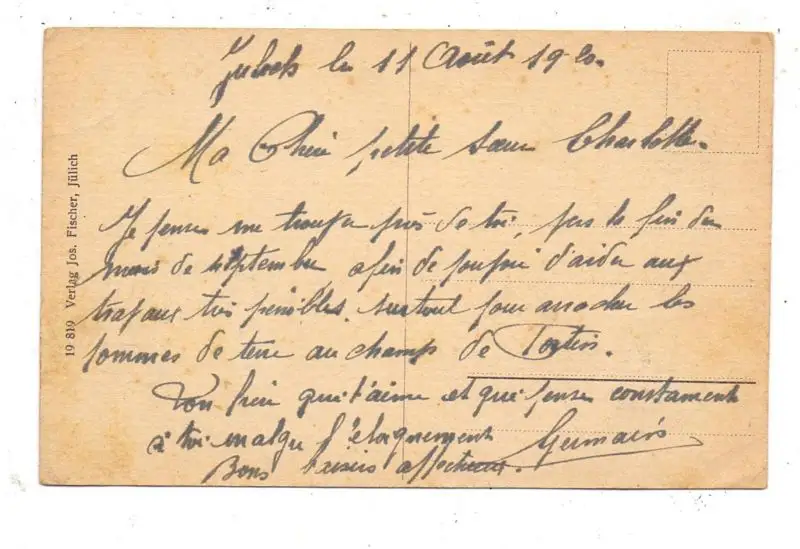 le 11 Août 1920.
Ma Chère petite sœur Charlotte.
Je pense me trouver près de toi, vers la fin du
mois de septembre, afin de pouvoir d'aider aux
travaux très pénibles. surtout pour arracher les
pommes de terre au champs de
Ton frère qui t'aime et qui pense constament
à toi malgré l'éloignement Germain
Bons baisers affectueux.
19 819 Verlag Jos. Fischer, Jülich